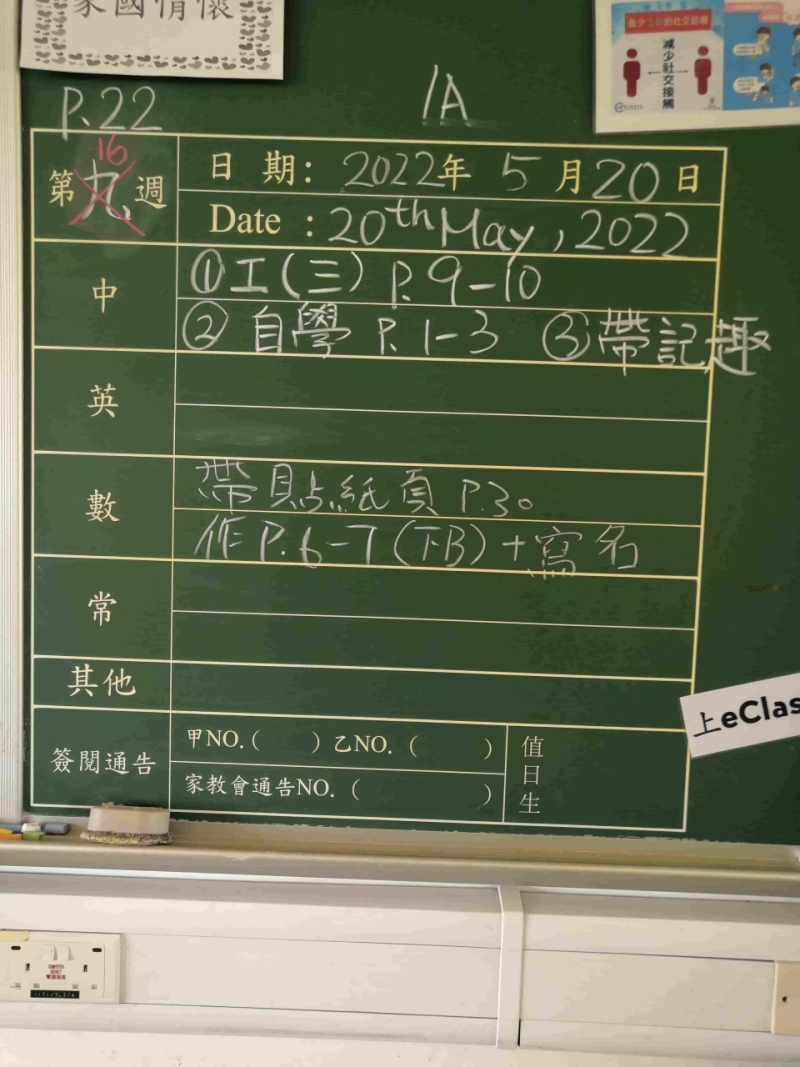 家國情懷
最少的社交距離
減少社交接觸
P.22
1A
第九週
16
日期：2022年5月20日
Date : 20th May, 2022
中
①工(三) P.9-10
②自學 P.1-3 ③帶記趣
英
數
帶貼紙頁 P.30
作P.6-7(下B)+寫名
常
其他
簽閱通告
甲NO.( ) 乙NO.( )
家教會通告NO.( )
值日生
上eClas